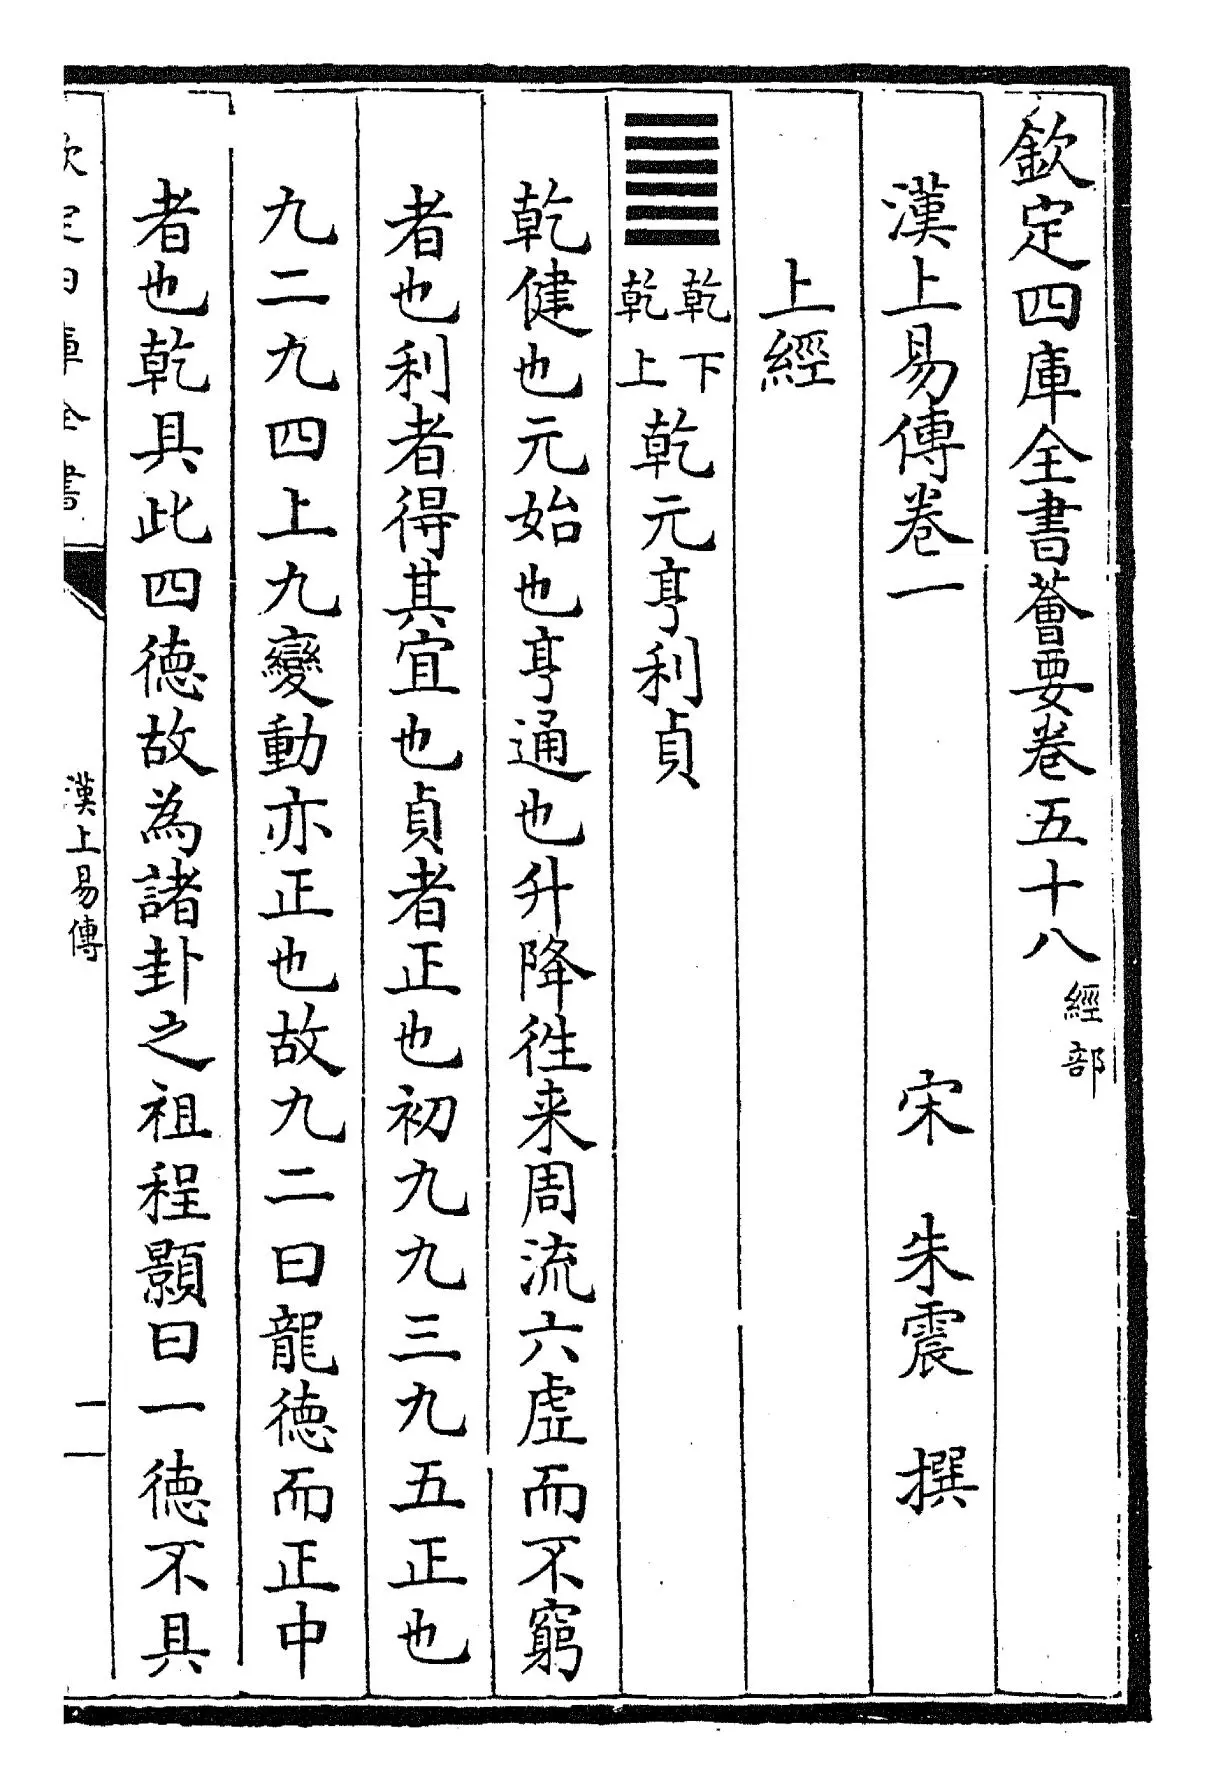 欽定四庫全書薈要卷五十八 經部
漢上易傳卷一 宋 朱震 撰
上經
乾下
乾上
乾元亨利貞
乾健也元始也亨通也升降徃来周流六虛而不窮
者也利者得其宜也貞者正也初九九三九五正也
九二九四上九變動亦正也故九二曰龍德而正中
者也乾具此四德故為諸卦之祖程顥曰一德不具
欽定四庫全書
漢上易傳
一